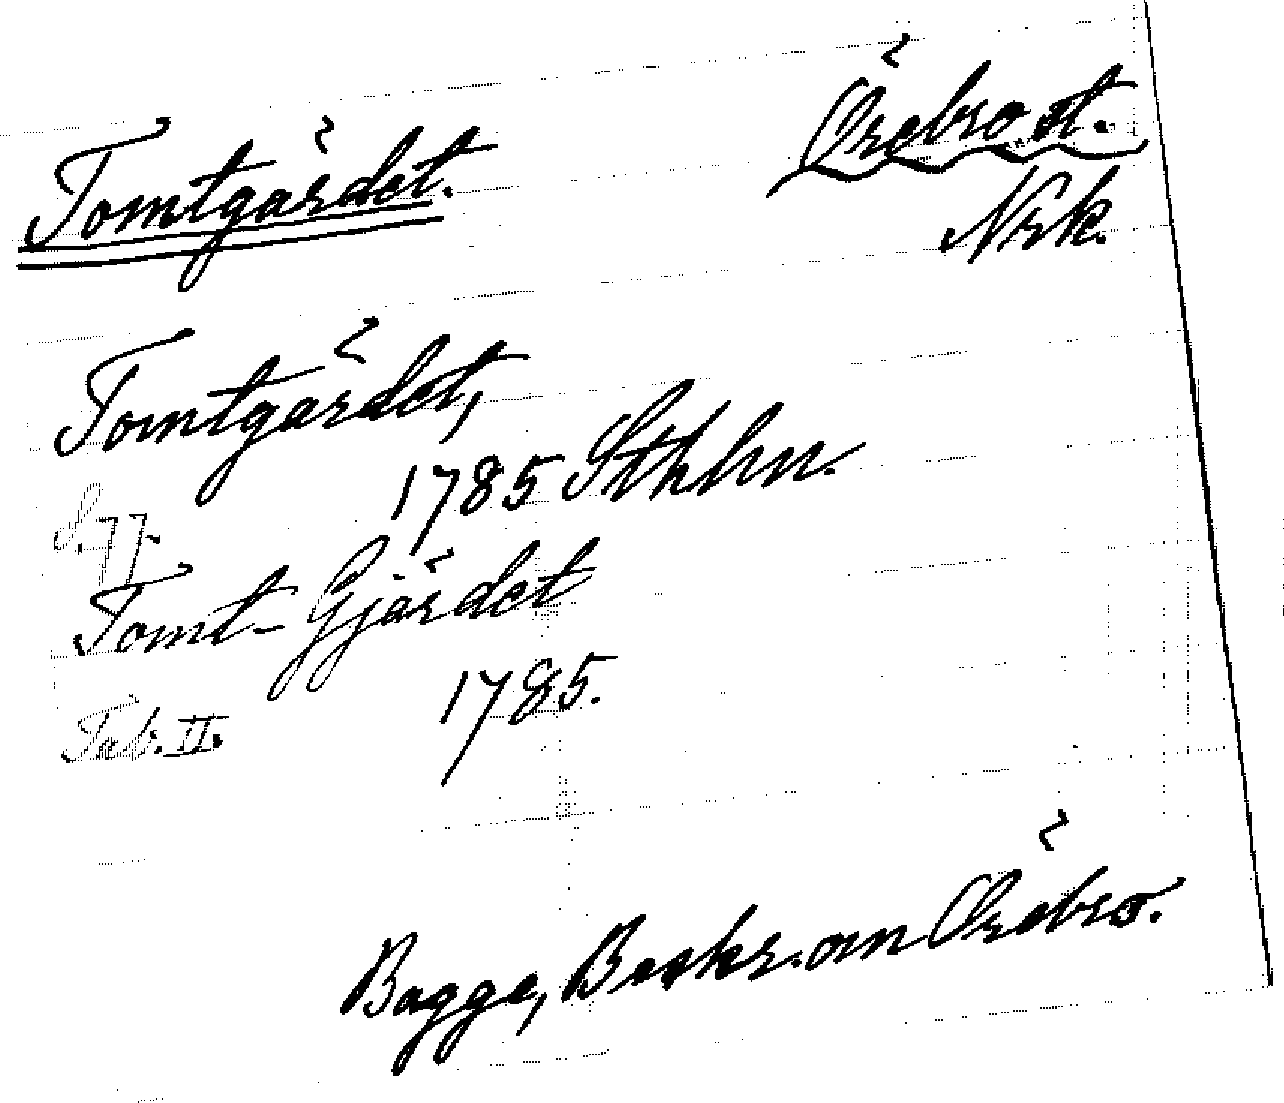 Tomtgärdet.
Örebro st.
Nrk.
Tomtgärdet,
1785 Sthlm.
s. 77.
Tomt-Gjärdet
1785.
Tab. II.
Bagge, Beskr. om Örebro.